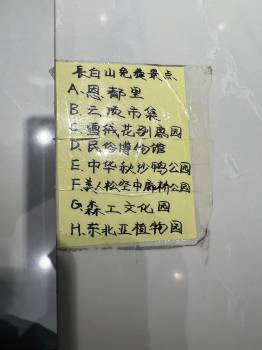 长白山免费景点
A、恩都里
B、云顶市集
C、雪绒花别康园
D、民俗博物馆
E、中华秋沙鸭公园
F、美人松空中廊桥公园
G、森工文化园
H、东北亚植物园